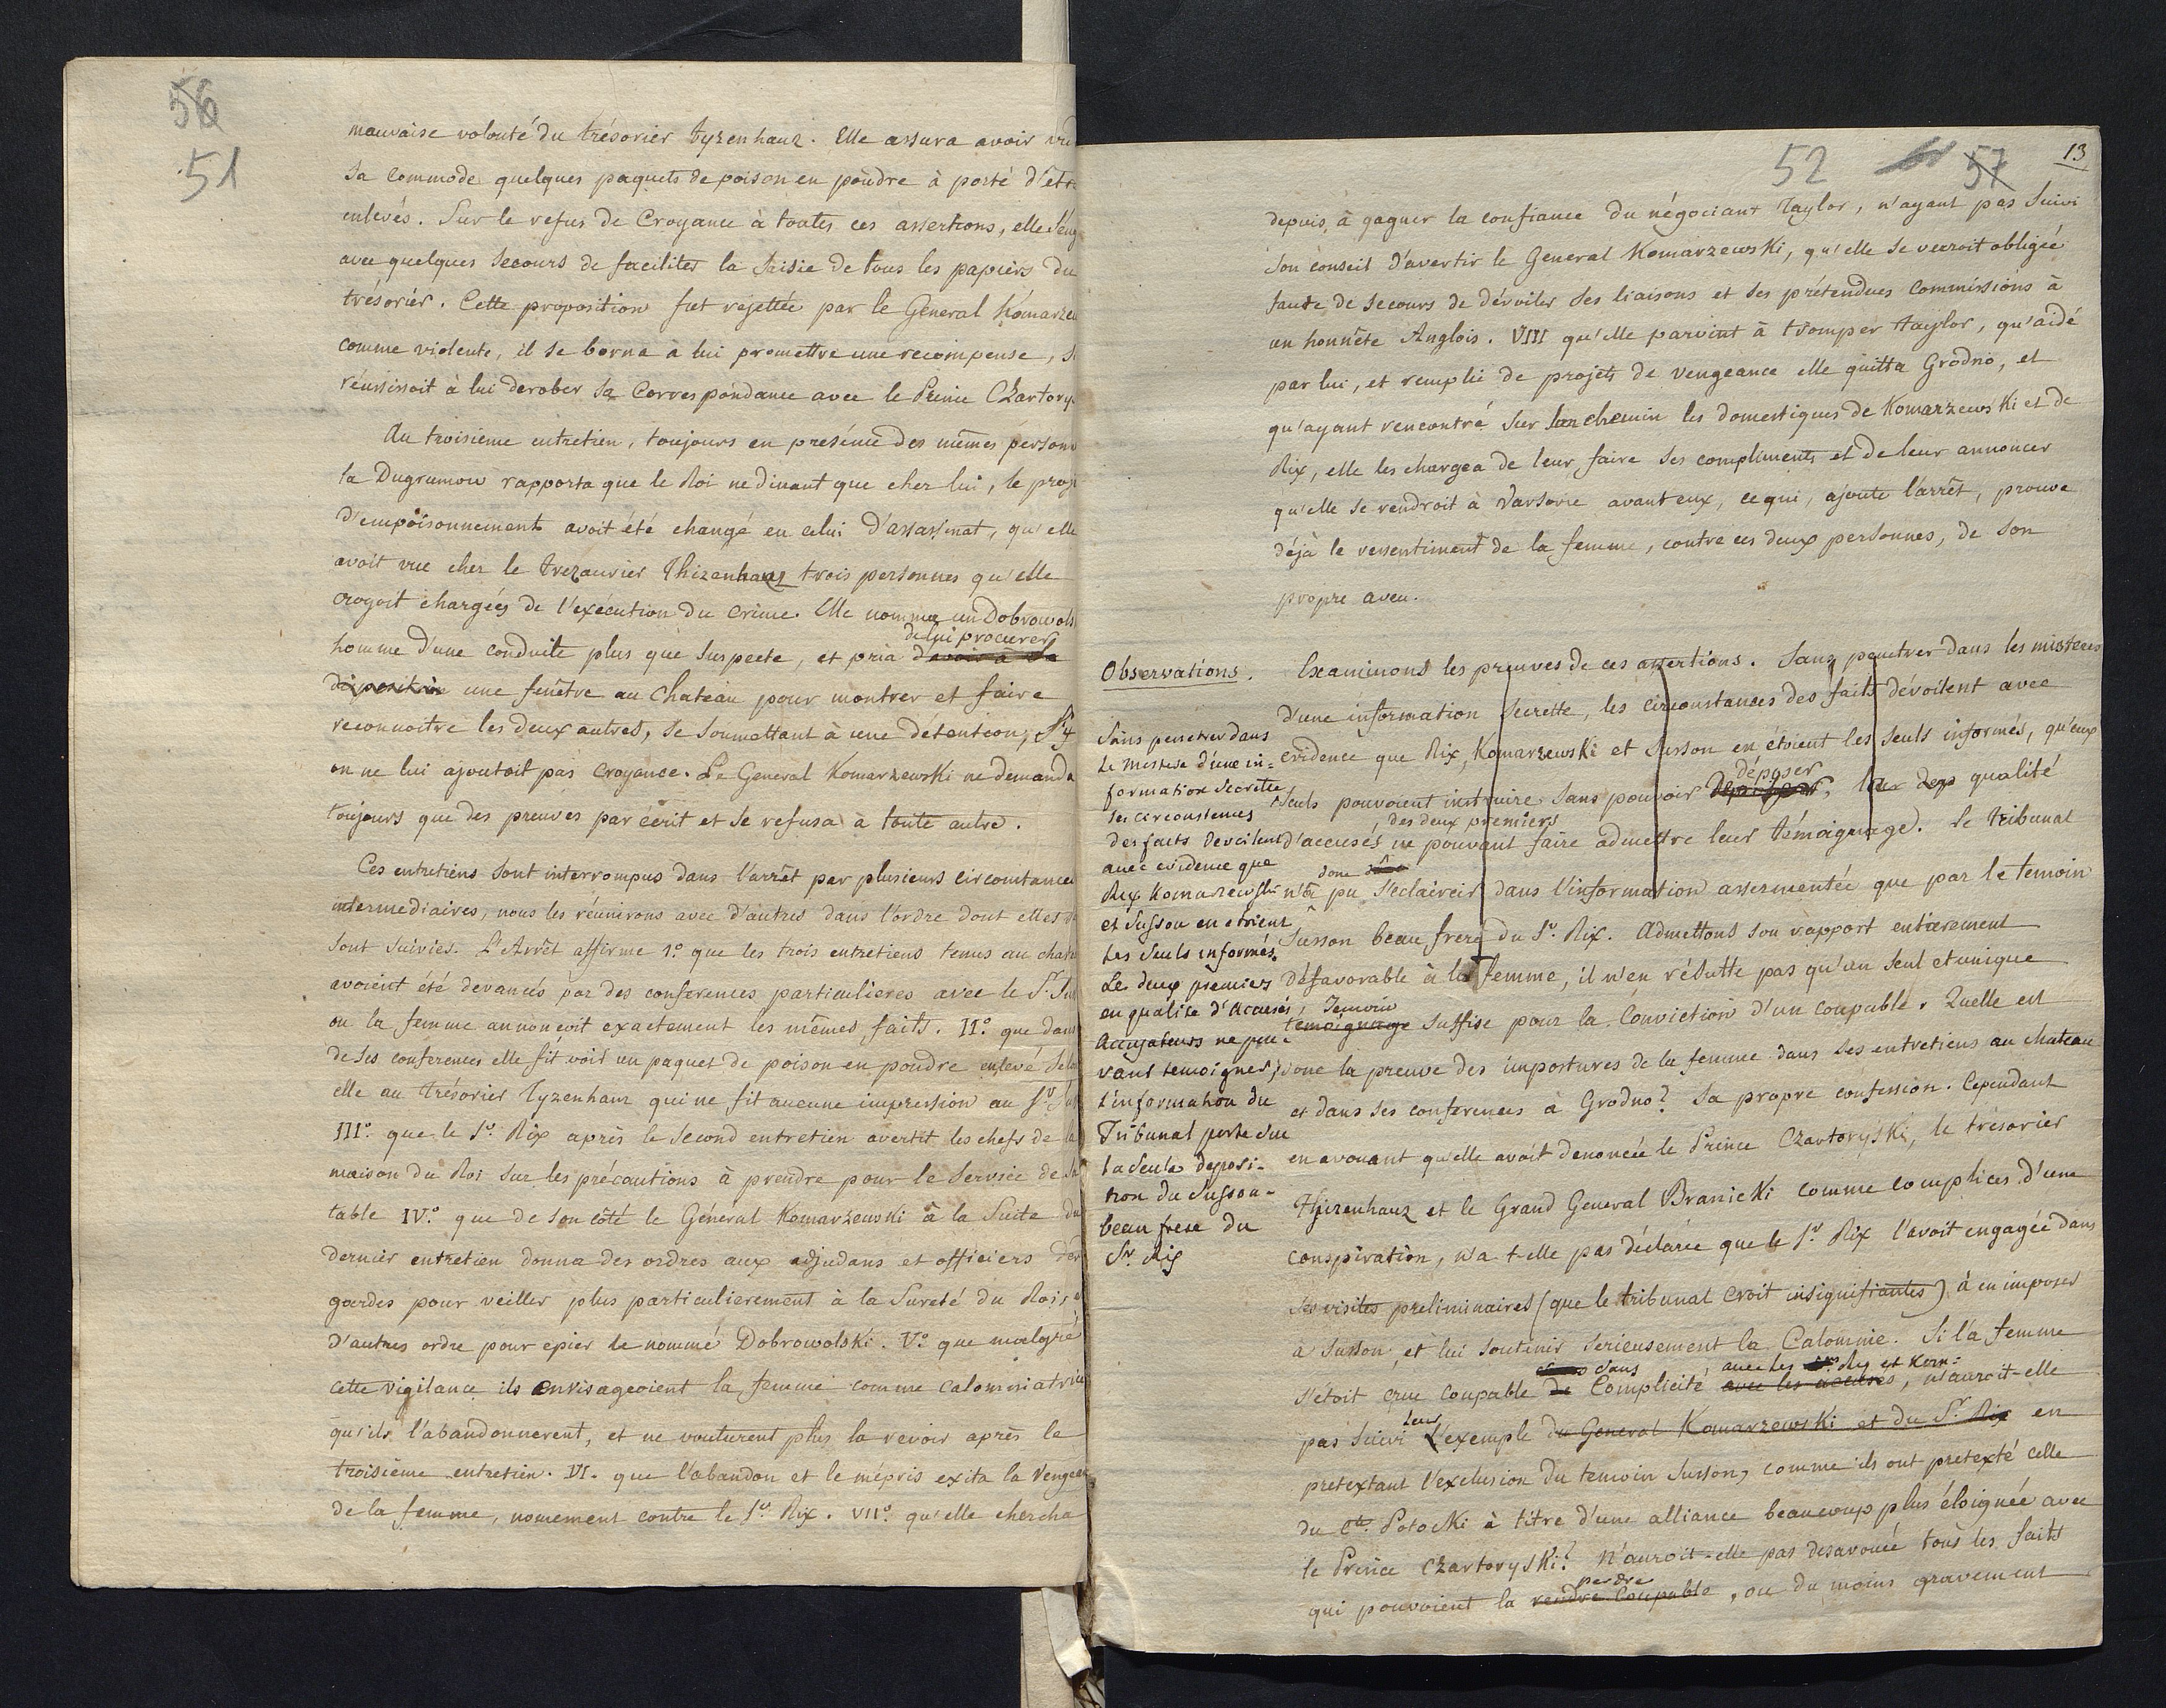 56
51
mauvaise volouté du trésorier tyzenhauz. Elle assura avoir
sa commode quelques paquets de poison en poudre à porté d'etr
enlevés. Sur le refus de Croyance à toutes ces assertions, elle s'eng
avec quelques secours de faciliter la saisie de tous les papiers du
trésorier. Cette proposition fut rejettée par le General Komarze
comme violente, il se borna à lui promettre une recompense, s
réussissoit à lui derober sa Correspondance avec le Prince CZartory
Au troisieme entretien, toujours en présence des mêmes person
la Dugrumow rapporta que le Roi ne dinant que chez lui, le proj
d'empoisonnement avoit été changé en celui d'assassinat, qu'elle
avoit vue chez le trezaurier Thizenhauz trois personnes qu'elle
croyoit chargées de l'exécution du crime. Elle nomma un Dobrowols
de lui procurer
homme d'une conduite plus que suspecte, et pria d'avoir à sa
disposition une fenêtre au Chateau pour montrer et faire
reconnoitre les deux autres, se soumettant à une détention, si
on ne lui ajoutoit pas croyance. Le General Komarzewski ne demanda
toujours que des preuves par écrit et se refusa à toute autre.
Ces entretiens sont interrompus dans l'arrêt par plusieurs circonstance
intermediaires, nous les réunirons avec d'autres dans l'ordre dont elles
sont suivies. L'Arrêt affirme 1.° que les trois entretiens tenus au chate
avoient été devancés par des conferences particulieres avec le Sr. Su
ou la femme annonçoit exactement les mêmes faits. II.° que dans
de ses conferences elle fit voir un paquet de poison en poudre enlevé selon
elle au trésorier Tyzenhauz qui ne fit aucune impression au Sr. Sus
III.° que le Sr. Rix après le second entretien avertit les chefs de la
maison du Roi sur les précautions à prendre pour le service de sa
table IV.° que de son côté le Général Komarzewski à la suite du
dernier entretien donna des ordres aux adjudans et officiers des
gardes pour veiller plus particulierement à la Sureté du Roi, e
d'autres ordre pour epier le nommé Dobrowolski. V.° que malgré
cette vigilance ils envisageoient la femme comme calomniatrice
qu'ils l'abandonnerent, et ne voulurent plus la revoir après le
troisième entretien. VI. que l'abandon et le mépris exita la Vengean
de la femme, nomement contre le Sr. Rix. VII.° qu'elle chercha
52 57 13
depuis à gagner la confiance du négociant Taylor, n'ayant pas suivi
son conseil d'avertir le General Komarzewski, qu'elle se verroit obligée
faute de secours de dévoiler ses liaisons et ses prétendues Commissions à
un honnête Anglois. VIII qu'elle parvint à tromper taylor, qu'aidé
par lui, et remplie de projets de vengeance elle quitta Grodno, et
qu'ayant rencontré sur son chemin les domestiques de Komarzewski et de
Rix, elle les chargea de leur faire ses compliments et de leur annoncer
qu'elle se rendroit à Varsovie avant eux, ce qui, ajoute l'arrêt, prouve
déjà le ressentiment de la femme, contre ces deux personnes, de son
propre aveu.
Observations.
Sans penetrer dans
le mistere d'une in=
formation Secrette
les circonstences
des faits devoilent
avec evidence que
Rix Komarzewski
et Susson en etoient
les Seuls informés.
Les deux premiers
en qualite d'Accusés,
Accusateurs ne pou-
vant temoigner;
l'information du
Tribunal porte sur
la Seule deposi-
tion du Susson-
beau frere du
Sr. Rix
Examinons les preuves de ces assertions. Sans penetrer dans les misteres
d'une information Secrette, les circonstances des faits dévoilent avec
evidence que Rix, Komarzewski et Susson en étoient les seuls informés, qu'eux
déposer
seuls pouvoient instruire sans pouvoir , leur qualité
, des deux premiers
d'accusés ne pouvant faire admettre leur témoignage. Le tribunal
donc
n'a pu s'éclaircir dans l'information assermentée que par le temoin
Susson beau frere du Sr. Rix. Admettons son rapport entierement
défavorable à la femme, il n'en résulte pas qu'un seul et unique
Temoin
temoignage suffise pour la Conviction d'un coupable. Quelle est
donc la preuve des impostures de la femme dans ses entretiens au chateau
et dans ses conferences à Grodno? Sa propre confession. Cependant
en avouant qu'elle avoit denoncée le Prince Czartoryski, le trésorier
Thizenhauz et le Grand General Branicki comme complices d'une
conspiration, n'a t-elle pas déclarée que le Sr. Rix l'avoit engagée dans
ses visites preliminaires (que le tribunal croit insignifiantes) à en imposer
à Susson, et lui soutenir serieusement la Calomnie. Si la femme
dans avec les Rix et Kom=
s'étoit crue coupable de Complicité avec les accusés, n'auroit-elle
leur
pas suivi l'exemple du General Komarzewski et du Sr. Rix en
pretextant l'exclusion du temoin Susson, comme ils ont pretexté celle
du Cte. Potocki à titre d'une alliance beaucoup plus éloignée avec
le Prince CZartoryski? N'auroit-elle pas desavouée tous les faits
perdre
qui pouvoient la rendre Coupable, ou du moins gravement